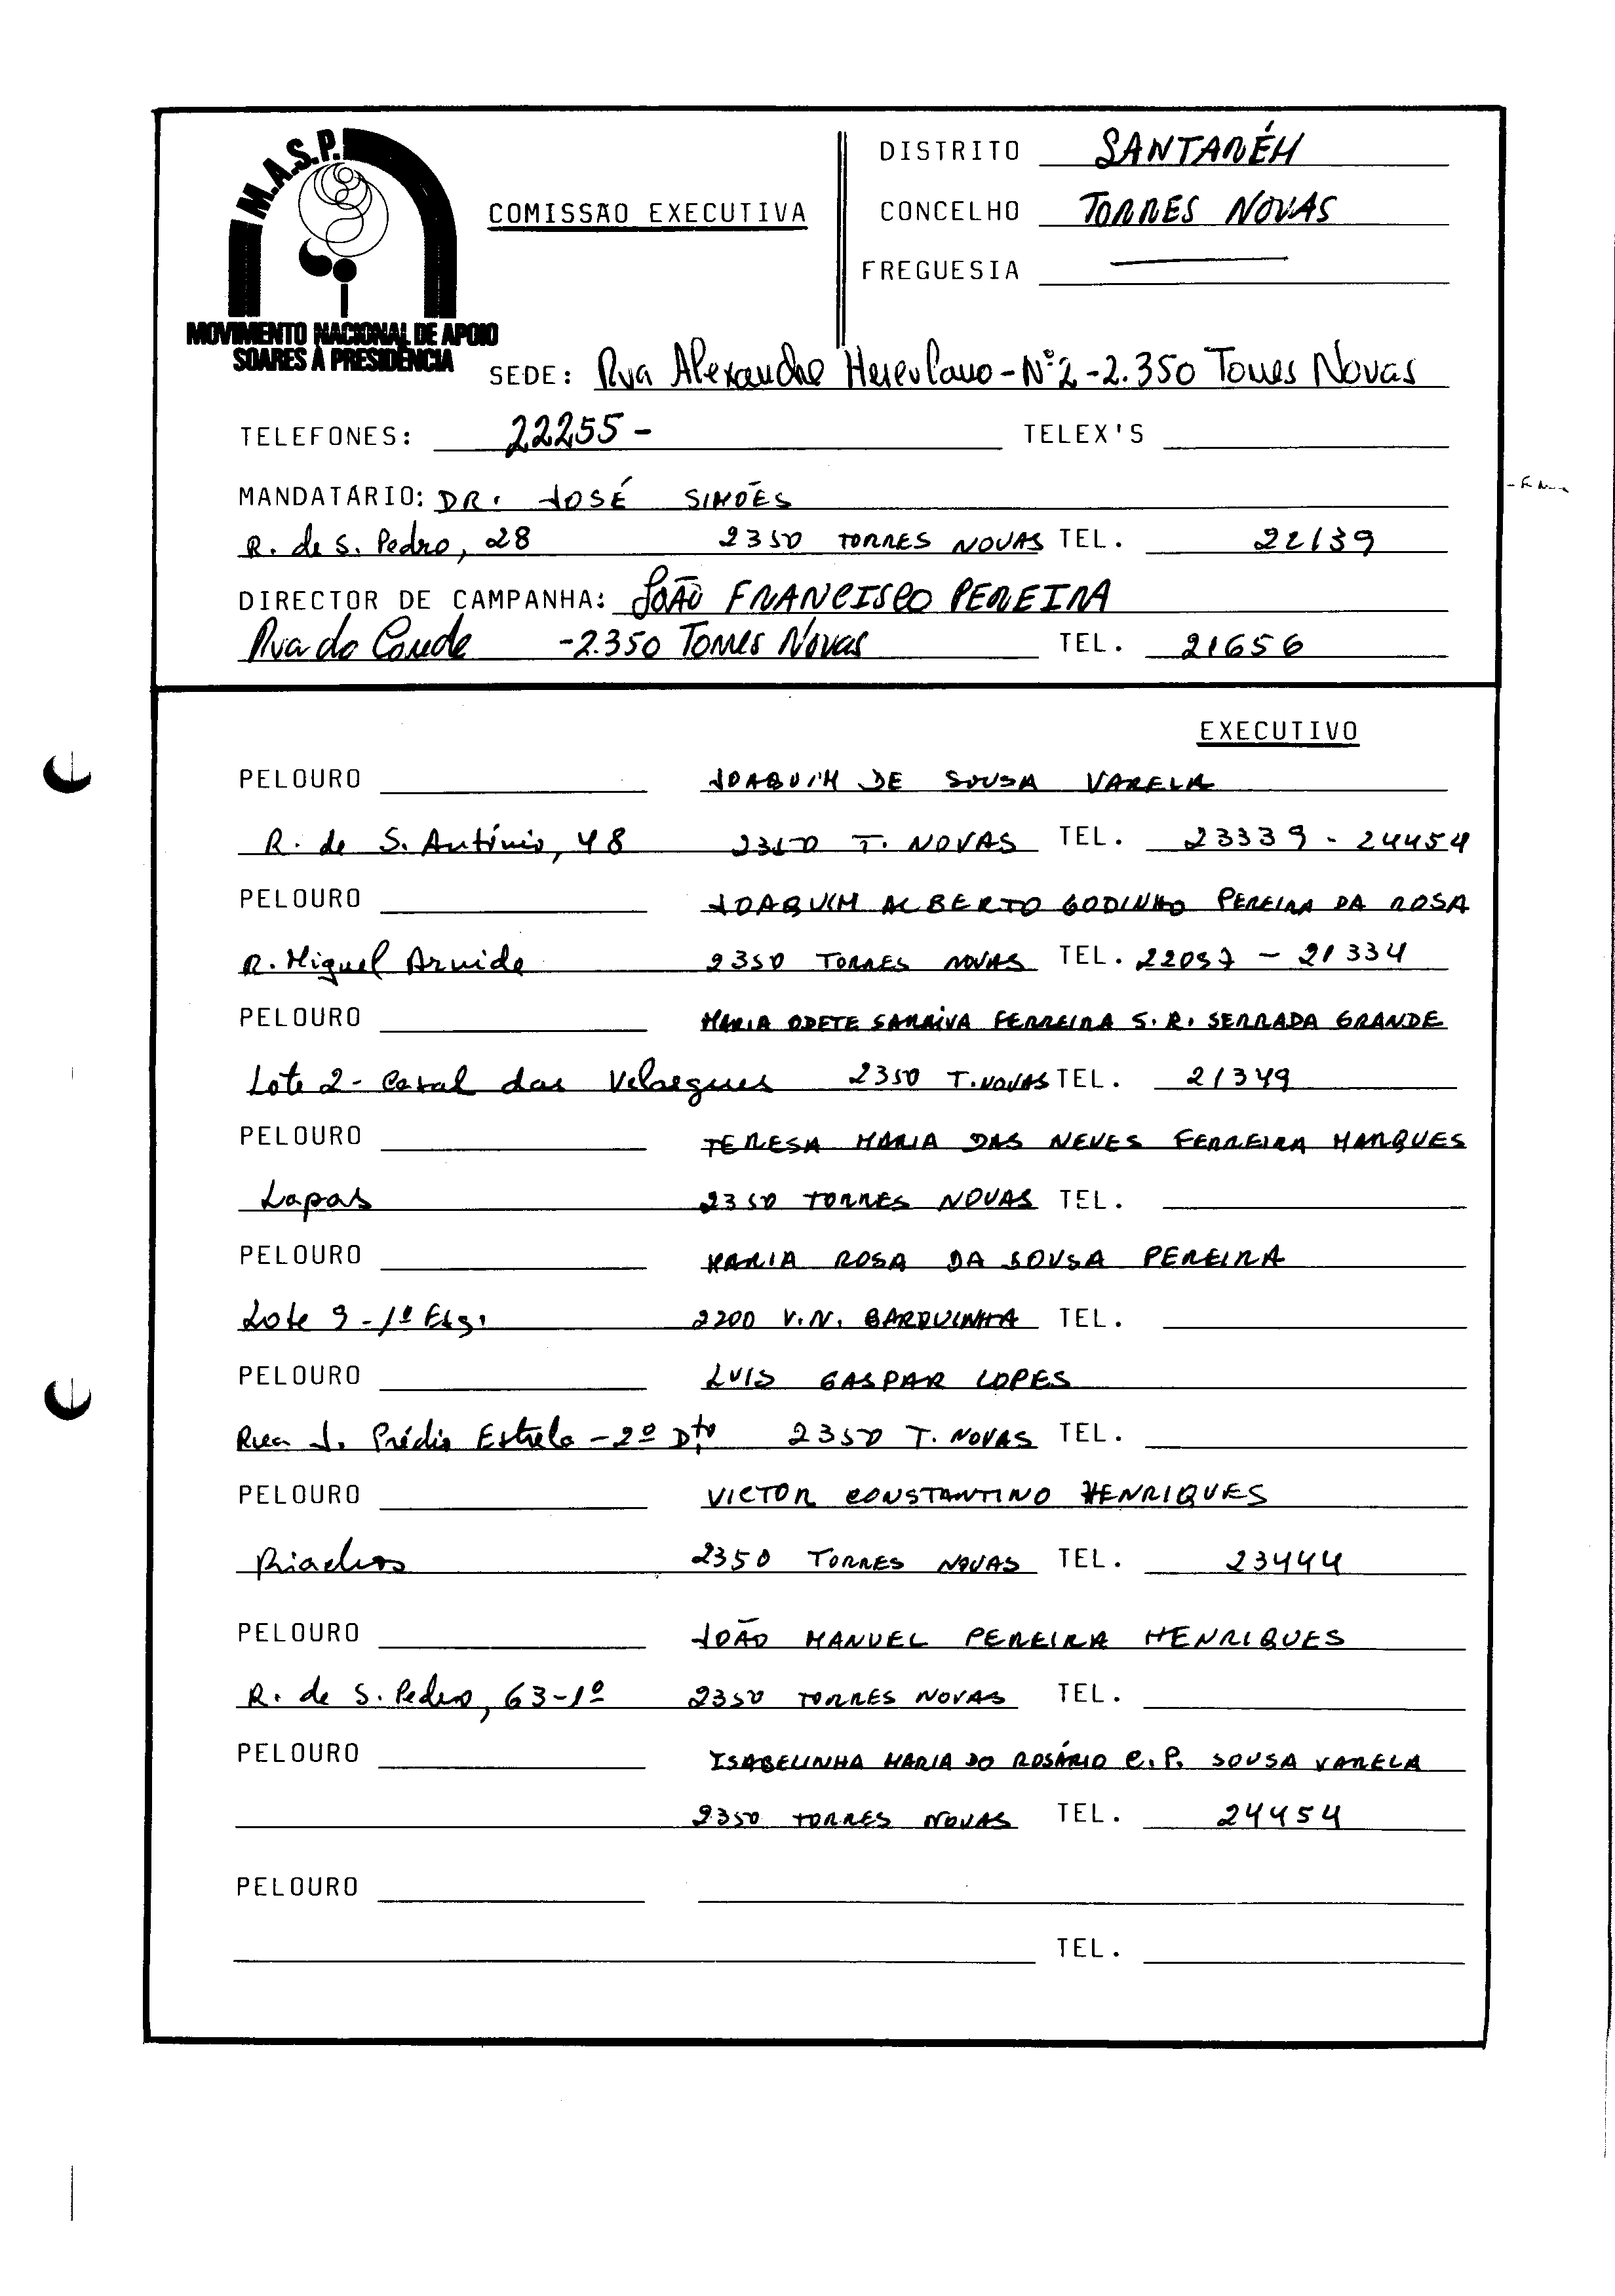 M.A.S.P.
MOVIMENTO NACIONAL DE APOIO
SOARES À PRESIDÊNCIA
COMISSÃO EXECUTIVA
DISTRITO SANTARÉM
CONCELHO TORRES NOVAS
FREGUESIA ———
SEDE: Rua Alexandre Herculano - Nº 2 - 2.350 Torres Novas
TELEFONES: 22255 - TELEX'S
MANDATÁRIO: DR. JOSÉ SIMÕES
R. de S. Pedro, 28 2350 TORRES NOVAS TEL. 22139
DIRECTOR DE CAMPANHA: JOÃO FRANCISCO PEREIRA
Rua do Conde - 2.350 Torres Novas TEL. 21656
EXECUTIVO
PELOURO JOAQUIM DE SOUSA VARELA
R. de S. António, 48 2350 T. NOVAS TEL. 23339 - 24454
PELOURO JOAQUIM ALBERTO GODINHO PEREIRA DA ROSA
R. Miguel Arnide 2350 TORRES NOVAS TEL. 22097 - 21334
PELOURO MARIA ODETE SARAIVA FERREIRA S. R. SERRADA GRANDE
Lote 2 - Casal das 2350 T. NOVAS TEL. 21349
PELOURO TERESA MARIA DAS NEVES FERREIRA MARQUES
Lapas 2350 TORRES NOVAS TEL.
PELOURO MARIA ROSA DA SOUSA PEREIRA
Lote 9 - 1º Esq. 2200 V.N. BARQUINHA TEL.
PELOURO LUIS GASPAR LOPES
Rua J. Prédio Estrela - 2º Dto 2350 T. NOVAS TEL.
PELOURO VICTOR CONSTANTINO HENRIQUES
Riachos 2350 TORRES NOVAS TEL. 23444
PELOURO JOÃO MANUEL PEREIRA HENRIQUES
R. de S. Pedro, 63-1º 2350 TORRES NOVAS TEL.
PELOURO ISABELINHA MARIA DO ROSÁRIO C. P. SOUSA VARELA
2350 TORRES NOVAS TEL. 24454
PELOURO
TEL.